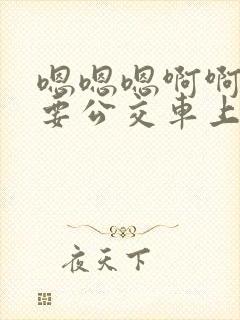 嗯嗯嗯啊啊
要公交車上
夜天下